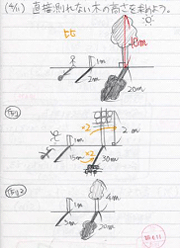 (4/11) 直接測れない木の高さを求めよう。
比
1m
2m
10m
20m
例1
×2
1m
2m
15m
×2
30m
例2
1m
4m
5m
20m